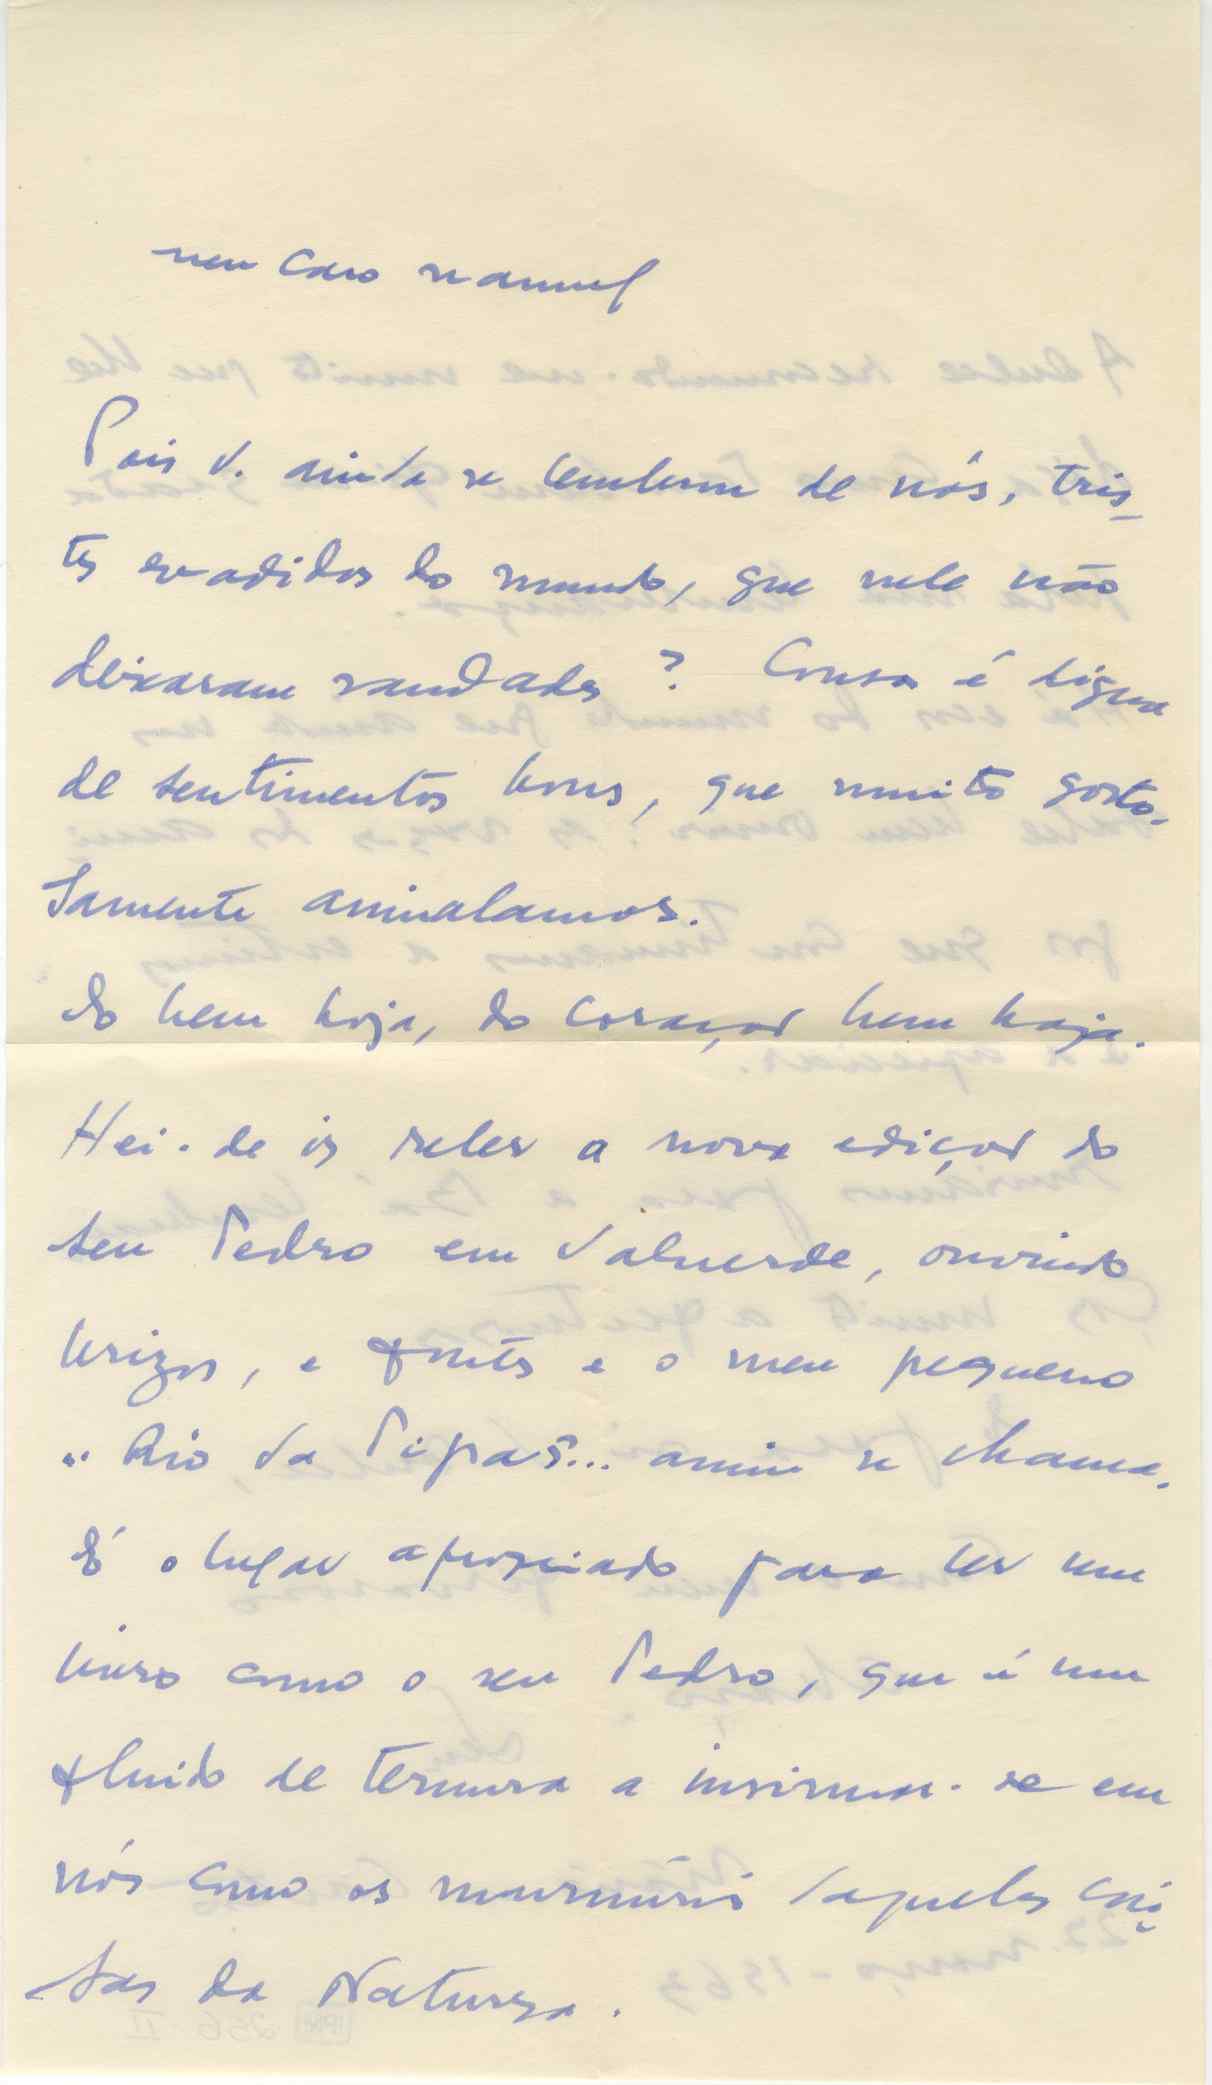 meu caro Manuel
Pois V. ainda se lembram de nós, tris-
tes evadidos do mundo, que nele não
deixaram saudades? Cousa é digna
de sentimentos bons, que muito gosto-
samente assinalamos.
do bem haja, do coração bem haja.
Hei-de ir reler a nova edição do
seu Pedro em Valverde, ouvindo
brizas, e fontes e o meu pequeno
"Rio da Pipa"... assim se chama.
É o lugar apropriado para ler um
livro como o seu Pedro, que é um
fluido de ternura a insinuar-se em
nós como os murmúrios daquelas coi-
sas da Natureza.